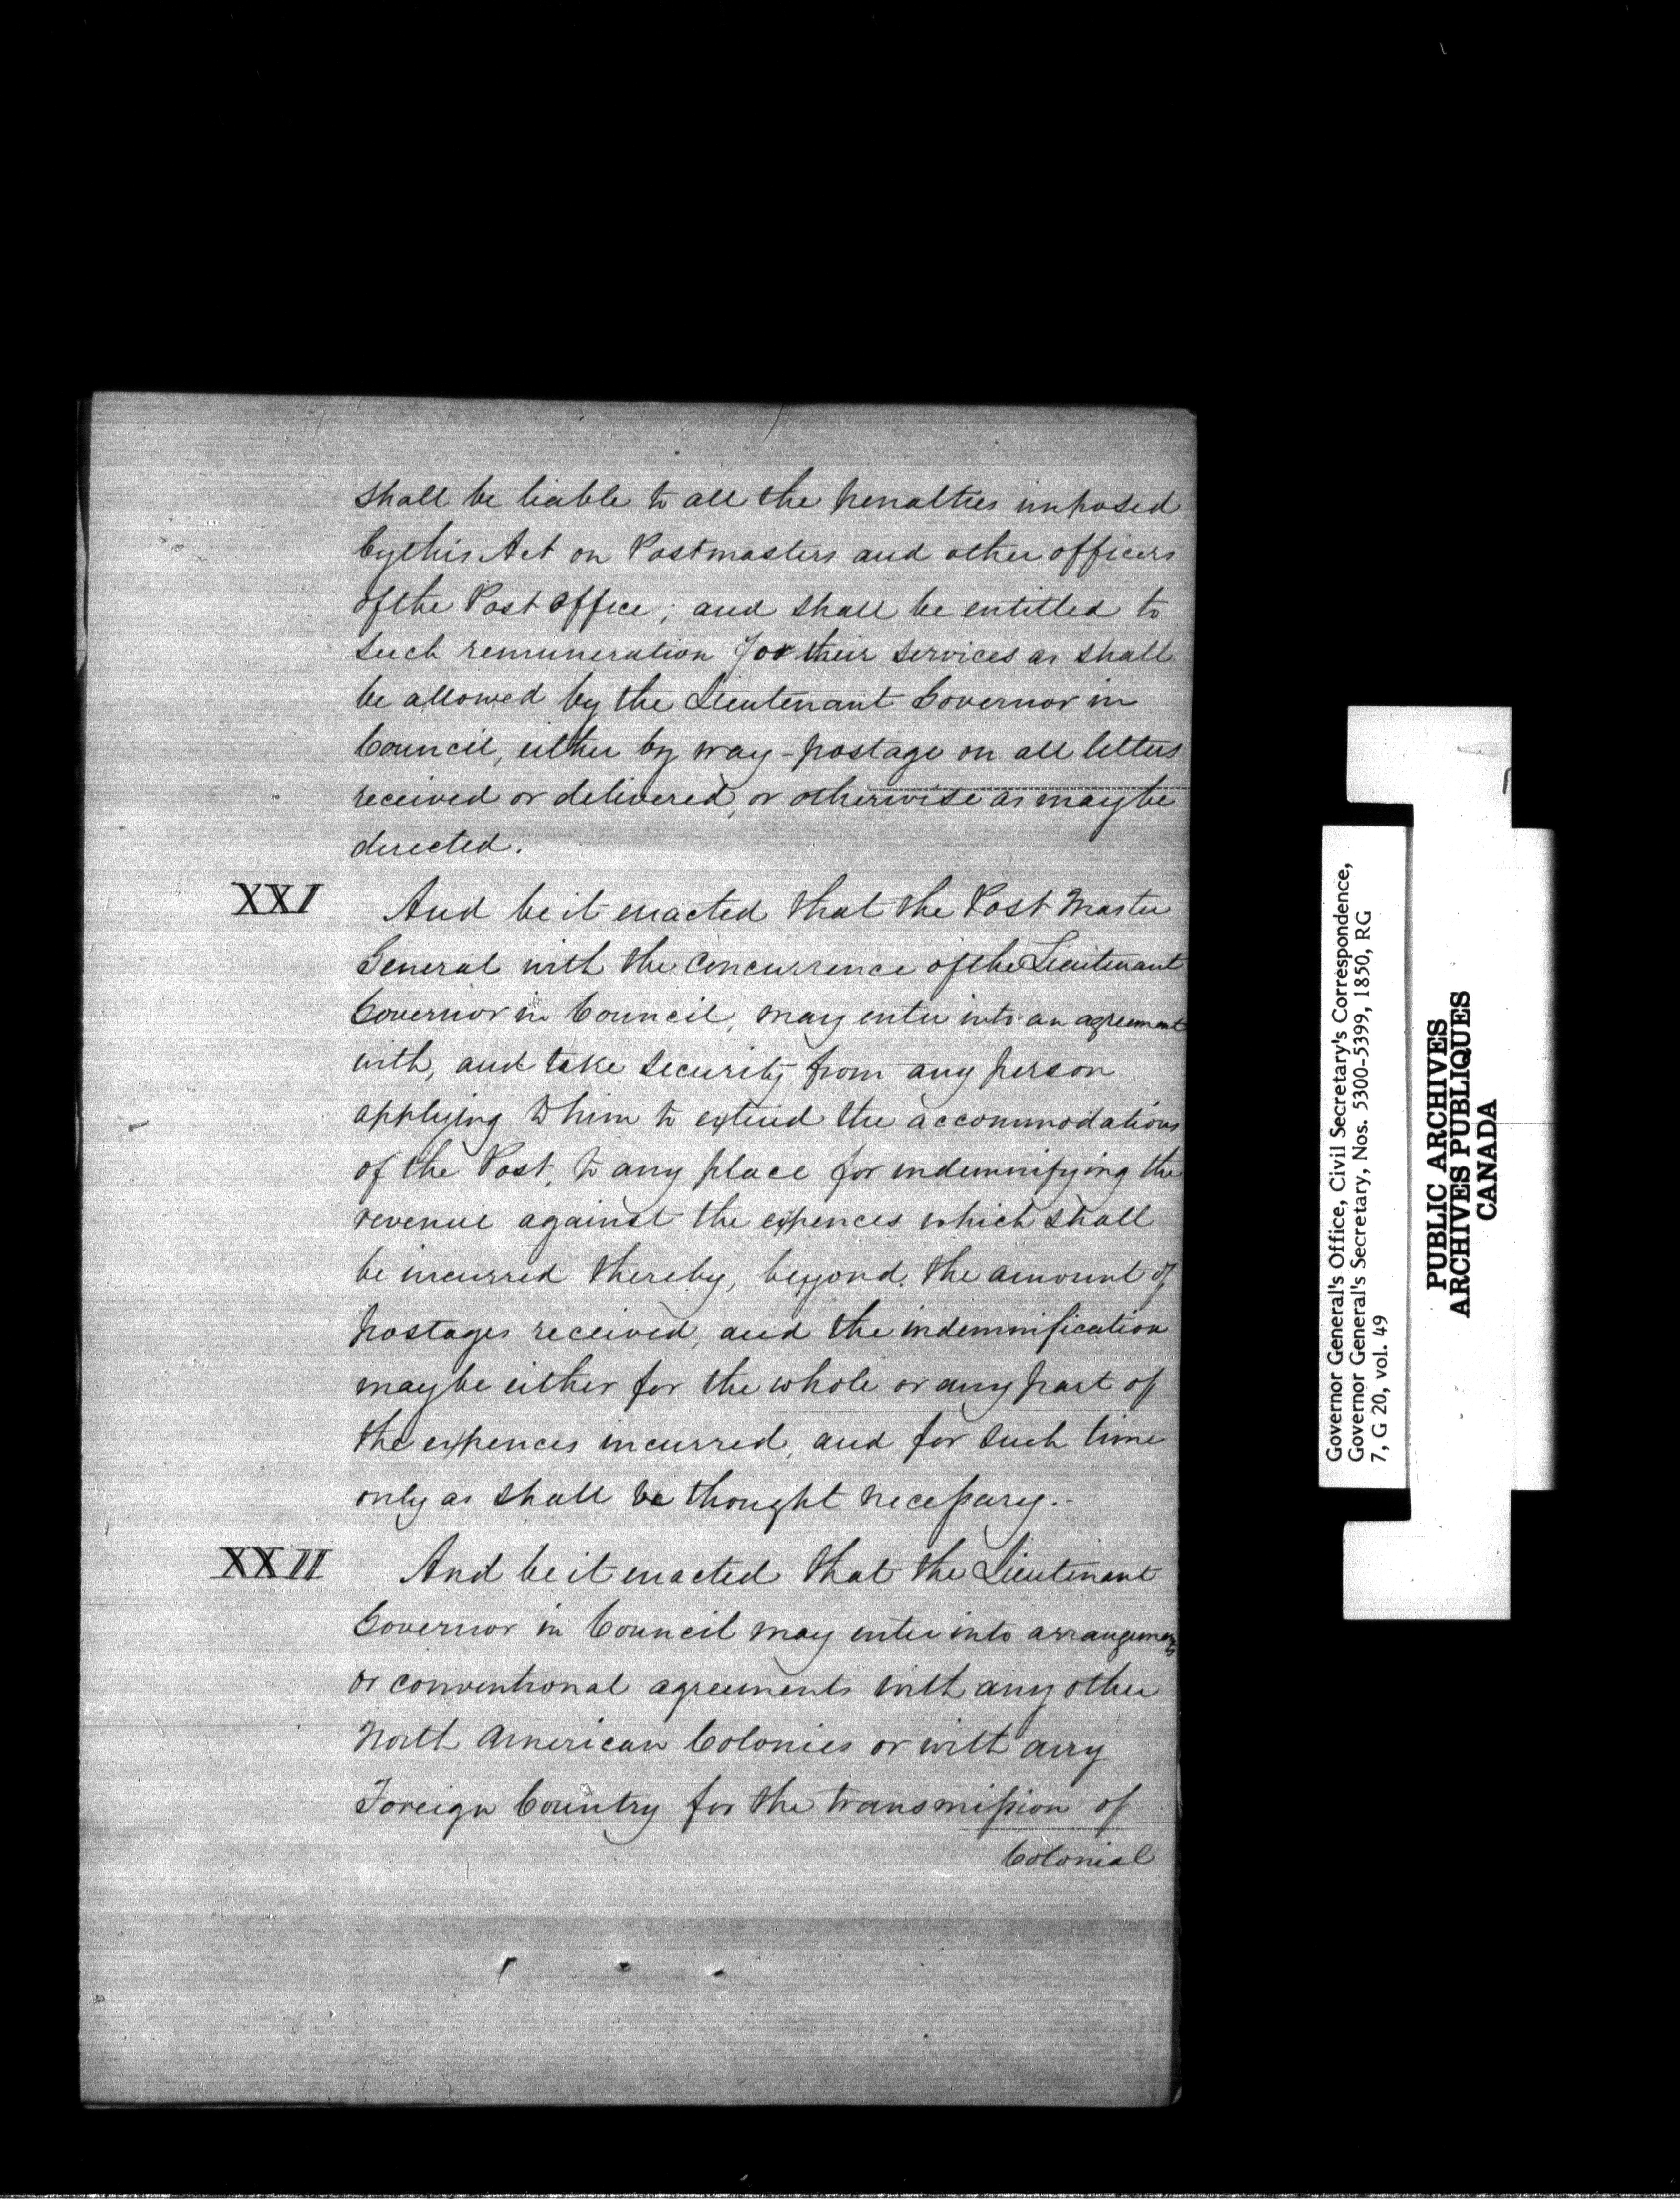 shall be liable to all the penalties imposed
by this Act on Postmasters and other officers
of the Post Office; and shall be entitled to
such remuneration for their services as shall
be allowed by the Lieutenant Governor in
Council, either by way-postage on all letters
received or delivered, or otherwise as may be
directed.
XXI And be it enacted that the Post Master
General with the concurrence of the Lieutenant
Governor in Council, may enter into an agreement
with, and take security from any person
applying to him to extend the accommodations
of the Post, to any place for indemnifying the
revenue against the expences which shall
be incurred thereby, beyond the amount of
postages received, and the indemnification
may be either for the whole or any part of
the expences incurred, and for such time
only as shall be thought necessary.-
XXII And be it enacted that the Lieutenant
Governor in Council may enter into arrangements
or conventional agreements with any other
North American Colonies or with any
Foreign Country for the transmission of
Colonial
Governor General's Office, Civil Secretary's Correspondence,
Governor General's Secretary, Nos. 5300-5399, 1850, RG
7, G 20, vol. 49
PUBLIC ARCHIVES
ARCHIVES PUBLIQUES
CANADA